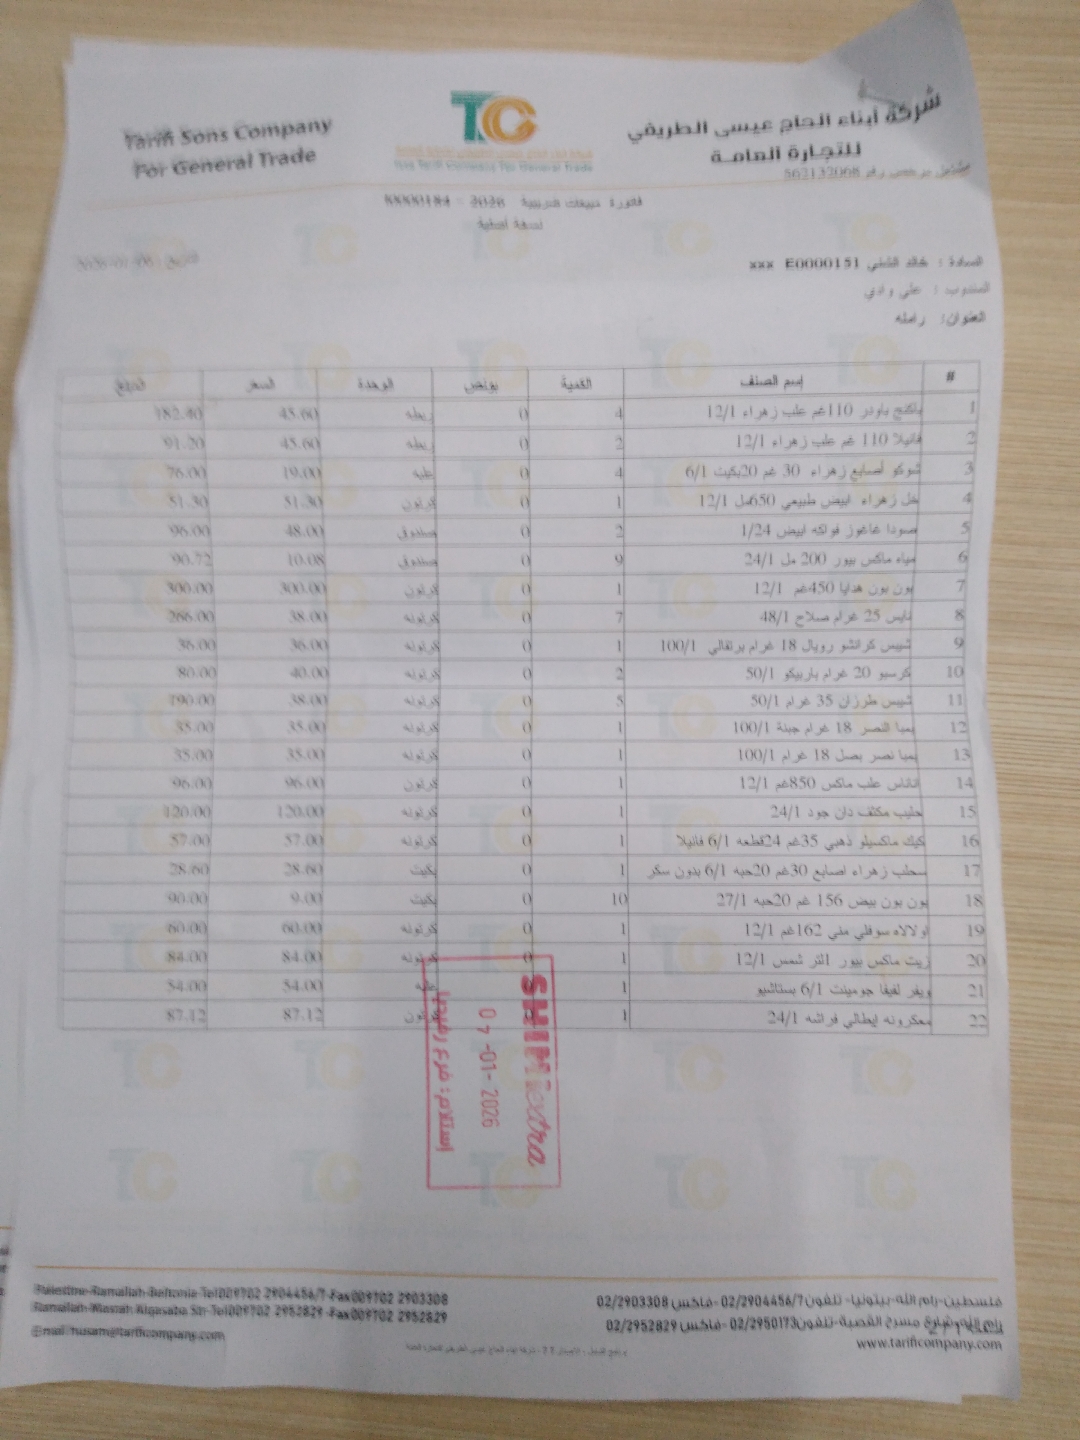 Tarifi Sons Company
For General Trade
TC
شركة أبناء الحاج عيسى الطريفي
للتجارة العامة
مشتغل مرخص رقم 562132068
فاتورة مبيعات
نسخة أصلية
السادة : خالد E0000151 xxx
المندوب : علي وادي
العنوان: رامله
# إسم الصنف الكمية بونص الوحدة السعر المبلغ
1 باكنج باودر 110غم علب زهراء 12/1 4 0 ربطه 45.60 182.40
2 فانيلا 110 غم علب زهراء 12/1 2 0 ربطه 45.60 91.20
3 شوكو أصابع زهراء 30 غم 20بكيت 6/1 4 0 علبه 19.00 76.00
4 خل زهراء ابيض طبيعي 650مل 12/1 1 0 كرتون 51.30 51.30
5 صودا غاغوز فواكه ابيض 1/24 2 0 صندوق 48.00 96.00
6 مياه ماكس بيور 200 مل 24/1 9 0 صندوق 10.08 90.72
7 بون بون هدايا 450غم 12/1 1 0 كرتون 300.00 300.00
8 تايس 25 غرام صلاح 48/1 7 0 كرتونه 38.00 266.00
9 شيبس كرانشو رويال 18 غرام برتقالي 100/1 1 0 كرتونه 36.00 36.00
10 كرسبو 20 غرام باربيكو 50/1 2 0 كرتونه 40.00 80.00
11 شيبس طرزان 35 غرام 50/1 5 0 كرتونه 38.00 190.00
12 بمبا النصر 18 غرام جبنة 100/1 1 0 كرتونه 35.00 35.00
13 بمبا نصر بصل 18 غرام 100/1 1 0 كرتونه 35.00 35.00
14 اناناس علب ماكس 850غم 12/1 1 0 كرتون 96.00 96.00
15 حليب مكثف دان جود 24/1 1 0 كرتونه 120.00 120.00
16 كيك ماكسيلو ذهبي 35غم 24قطعه 6/1 فانيلا 1 0 كرتونه 57.00 57.00
17 سحلب زهراء اصابع 30غم 20حبه 6/1 بدون سكر 1 0 بكيت 28.60 28.60
18 بون بون بيض 156 غم 20حبه 27/1 10 0 بكيت 9.00 90.00
19 اولالاه سوفلي مني 162غم 12/1 1 0 كرتونه 60.00 60.00
20 زيت ماكس بيور التر شمس 12/1 1 0 كرتونه 84.00 84.00
21 ويفر لفيفا جومينت 6/1 بستاشيو 1 علبه 54.00 54.00
22 معكرونه إيطالي فراشه 24/1 1 كرتون 87.12 87.12
SHINI extra
07-01-2026
استلام: فرع رفيديا
Palestine-Ramallah-Beitonia-Tel009702 2904456/7-Fax009702 2903308
Ramallah-Masrah Alqasaba Str-Tel009702 2952829 -Fax009702 2952829
Email: husam@tarificompany.com
فلسطين-رام الله-بيتونيا- تلفون 02/2904456/7 -فاكس 02/2903308
رام الله-شارع مسرح القصبة-تلفون02/2950173 -فاكس 02/2952829
www.tarificompany.com